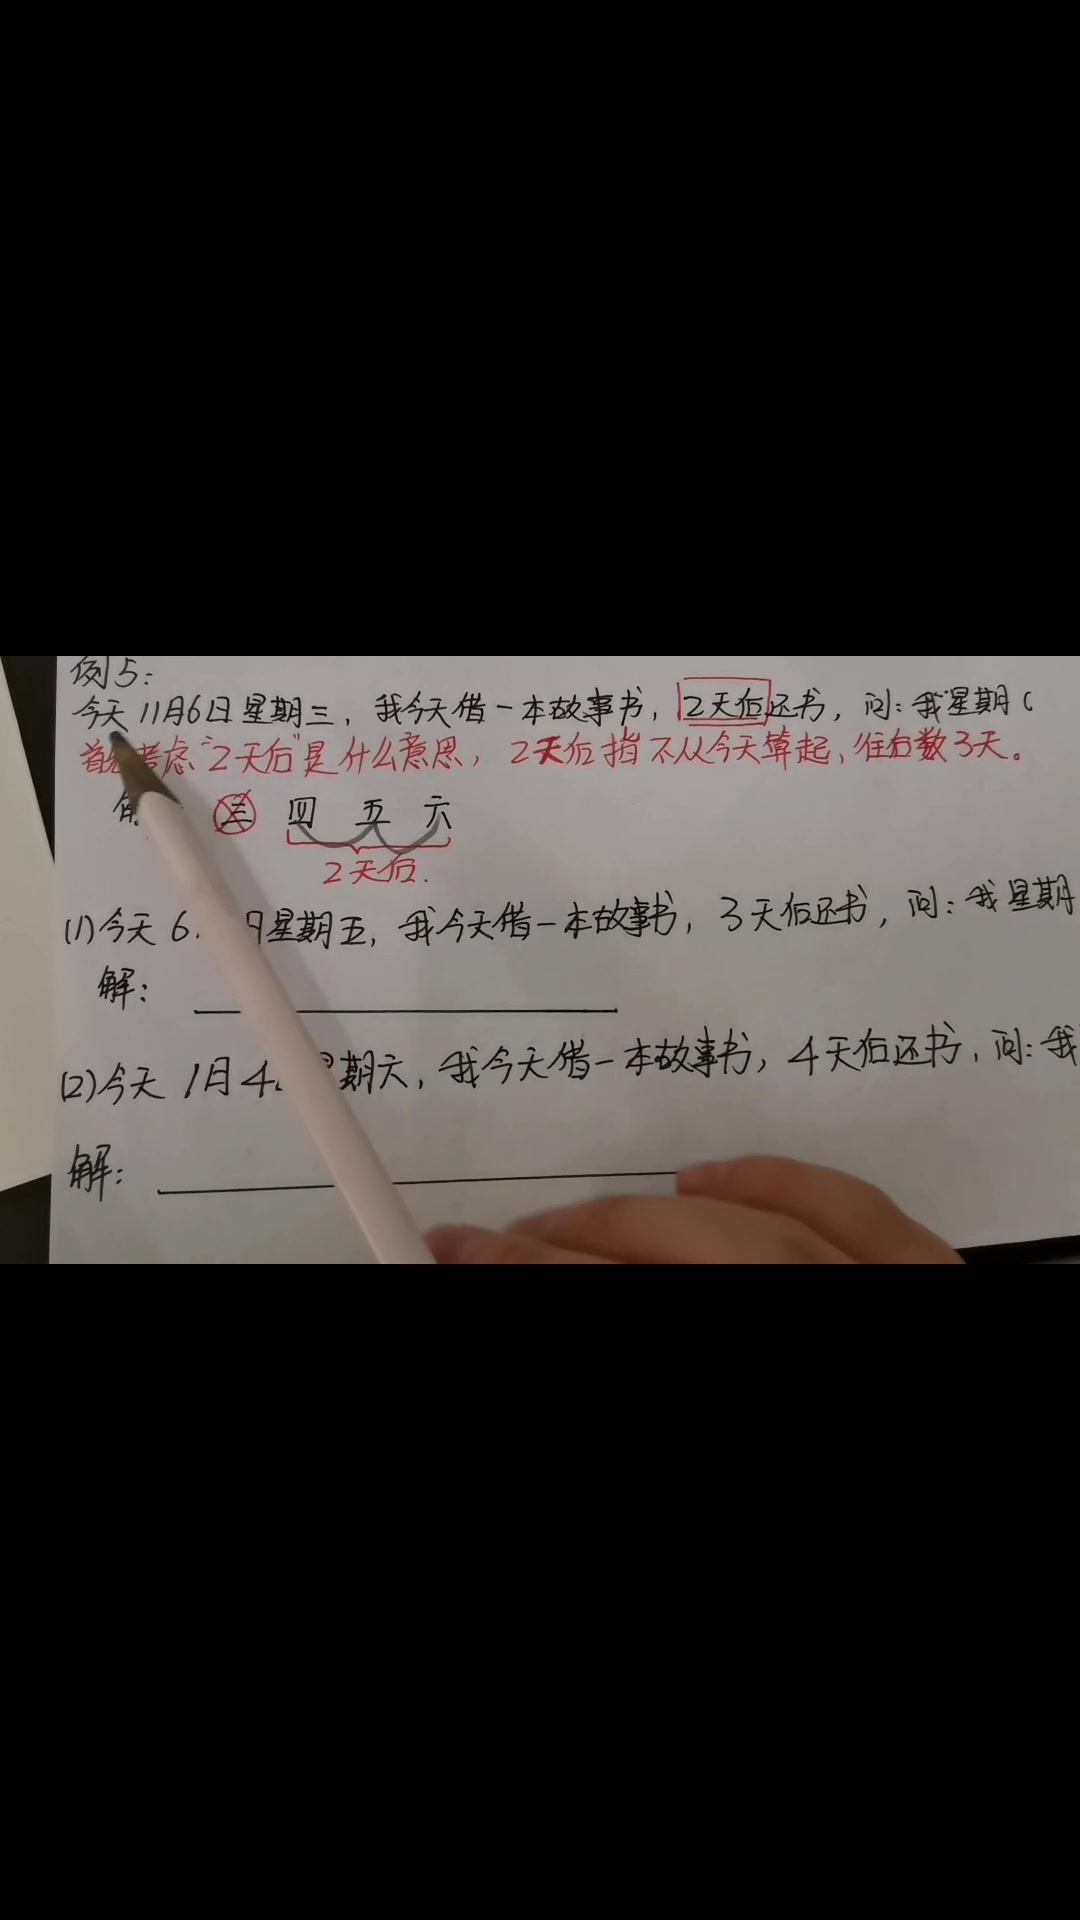 例5:
今天11月6日星期三，我今天借一本故事书，2天后还书，问:我星期(
首先考虑"2天后"是什么意思，2天后指不从今天算起，往后数3天。
三 四 五 六
2天后.
(1)今天6 日星期五，我今天借一本故事书，3天后还书，问:我星期
解:
(2)今天1月4 星期六，我今天借一本故事书，4天后还书，问:我
解: